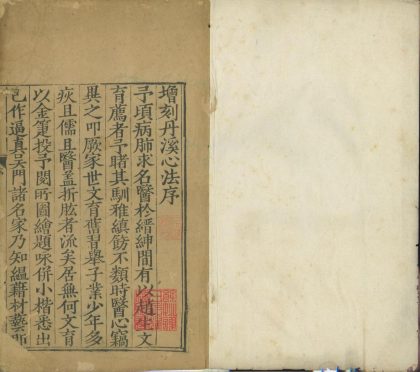 增刻丹溪心法序
予頃病肺求名醫於縉紳間有以趙生文
育薦者予睹其馴雅縝飭不類時醫心竊
異之叩厥家世文育舊習舉子業少年多
疾且儒且醫蓋折肱者流矣居無何文育
以金箑投予閱所圖繪題咏併小楷悉出
己作逼真吳門諸名家乃知縕藉材藝